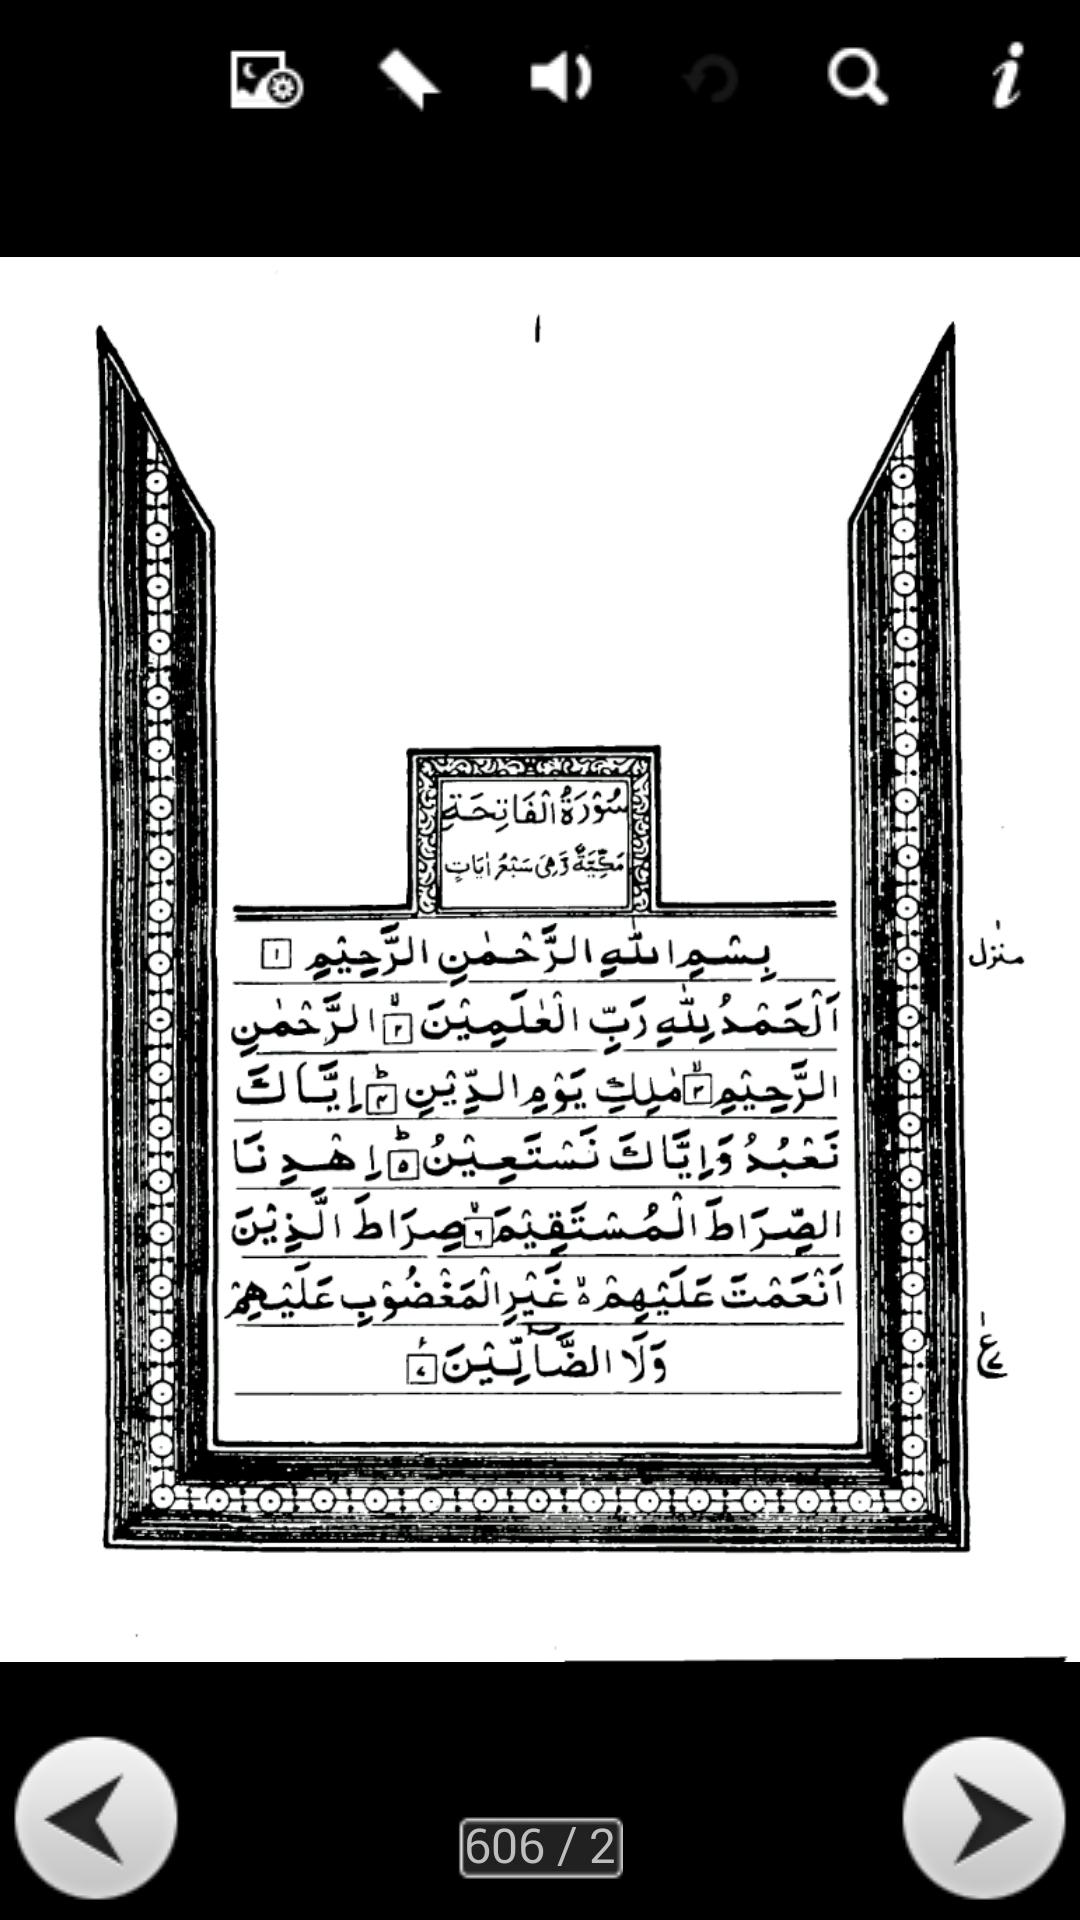 ١
سُوْرَةُ الْفَاتِحَةِ
مَكِّيَّةٌ وَّهِيَ سَبْعُ اٰيَاتٍ
بِسْمِ اللّٰهِ الرَّحْمٰنِ الرَّحِيْمِ ١
منزل
اَلْحَمْدُ لِلّٰهِ رَبِّ الْعٰلَمِيْنَ ۙ ٢ الرَّحْمٰنِ
الرَّحِيْمِ ۙ ٣ مٰلِكِ يَوْمِ الدِّيْنِ ؕ ٤ اِيَّاكَ
نَعْبُدُ وَاِيَّاكَ نَسْتَعِيْنُ ؕ ٥ اِهْدِنَا
الصِّرَاطَ الْمُسْتَقِيْمَ ۙ ٦ صِرَاطَ الَّذِيْنَ
اَنْعَمْتَ عَلَيْهِمْ ۙ۬ غَيْرِ الْمَغْضُوْبِ عَلَيْهِمْ
وَلَا الضَّآلِّيْنَ ۠ ٧
ع
606 / 2